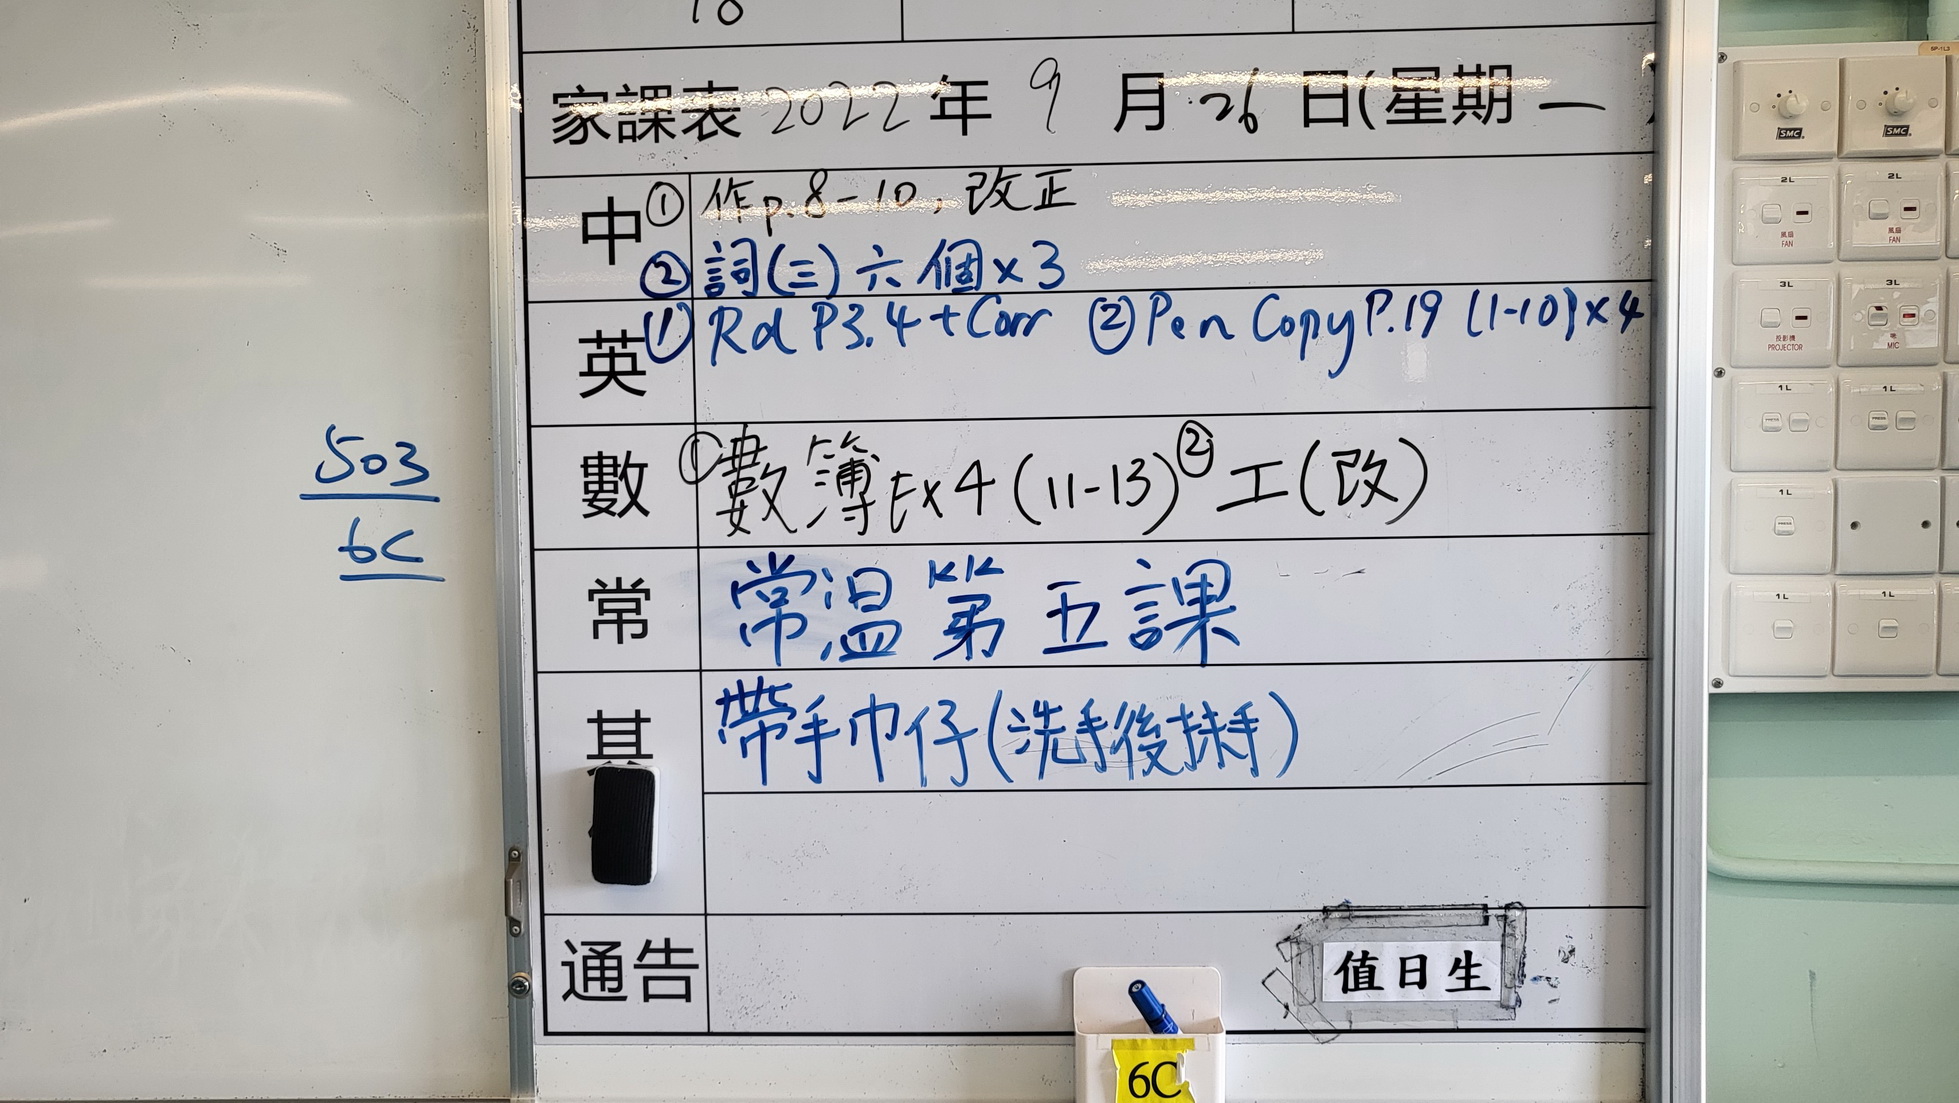 18
家課表 2022 年 9 月 26 日(星期 一
中 ① 作p.8-10, 改正
② 詞(三) 六個x3
英 ① Rd P3.4+Corr ② Pen Copy P.19 (1-10)x4
數 ① 數簿Ex4 (11-13) ② 工(改)
常 常溫第五課
其 帶手巾仔(洗手後抹手)
通告
值日生
6C
503
6C
SP-1L3
SMC
SMC
2L
風扇
FAN
2L
風扇
FAN
3L
投影機
PROJECTOR
3L
MIC
1L
PRESS
1L
PRESS
1L
PRESS
1L
1L